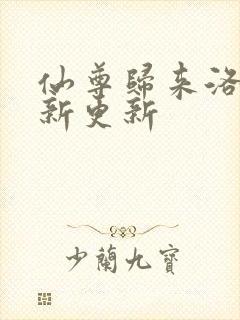 仙尊歸来洛
新更新
少蘭九寶